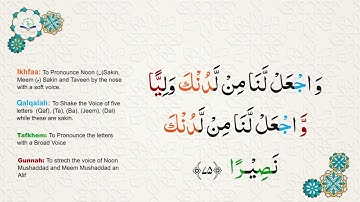 Ikhfaa: To Pronounce Noon (ن)Sakin,
Meem (م) Sakin and Taveen by the nose
with a soft voice.
Qalqalah: To Shake the Voice of five
letters (Qaf), (Ta), (Ba), (Jeem), (Dal)
while these are sakin.
Tafkhem: To Pronounce the letters
with a Broad Voice
Gunnah: To strech the voice of Noon
Mushaddad and Meem Mushaddad an
Alif
وَاجْعَلْ لَّنَا مِنْ لَّدُنْكَ وَلِيًّا
وَّاجْعَلْ لَّنَا مِنْ لَّدُنْكَ
نَصِيْرًا ﴿۷۵﴾